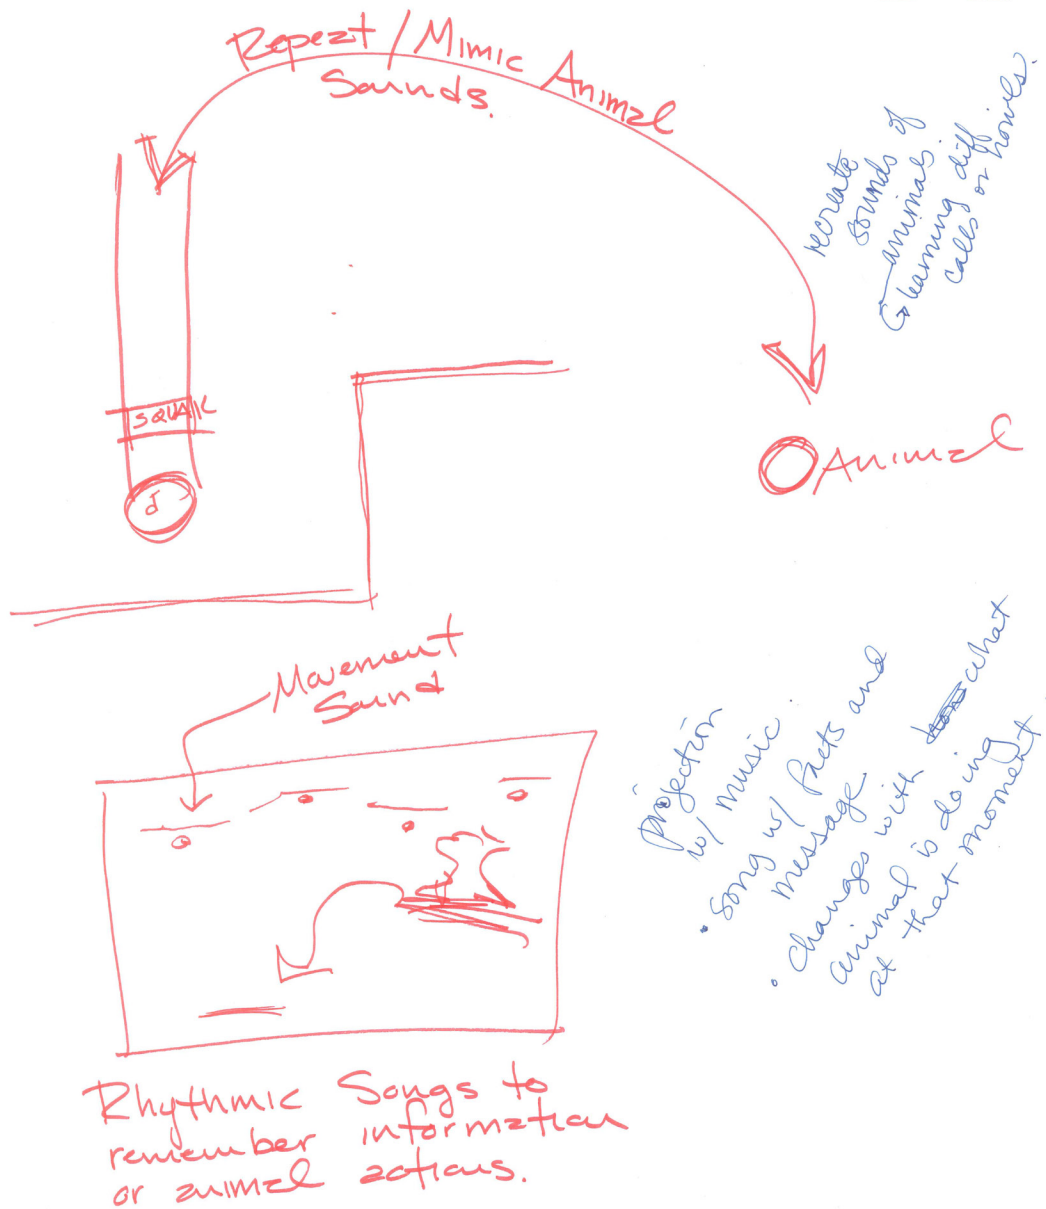 Repeat / Mimic Animal
Sounds.
recreate
sounds of
animals.
↳ learning diff
calls or howls.
SQUAIL
d
Animal
Movement
Sound
projection
w/ music.
• song w/ facts and
message
• changes with what
animal is doing
at that moment
Rhythmic Songs to
remember information
or animal actions.